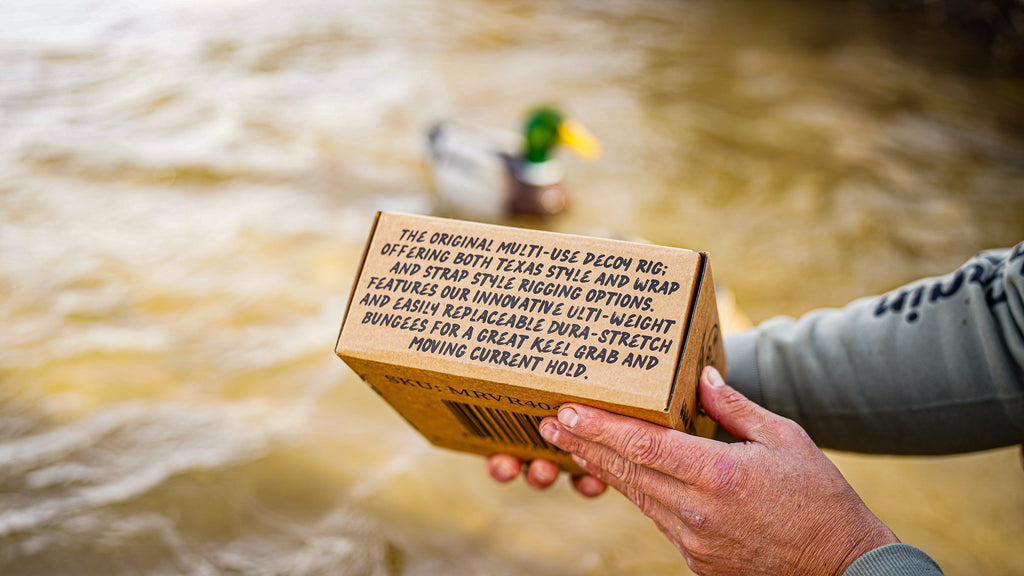 THE ORIGINAL MULTI-USE DECOY RIG;
OFFERING BOTH TEXAS STYLE AND WRAP
AND STRAP STYLE RIGGING OPTIONS.
FEATURES OUR INNOVATIVE ULTI-WEIGHT
AND EASILY REPLACEABLE DURA-STRETCH
BUNGEES FOR A GREAT KEEL GRAB AND
MOVING CURRENT HOLD.
SKU: MRVR40